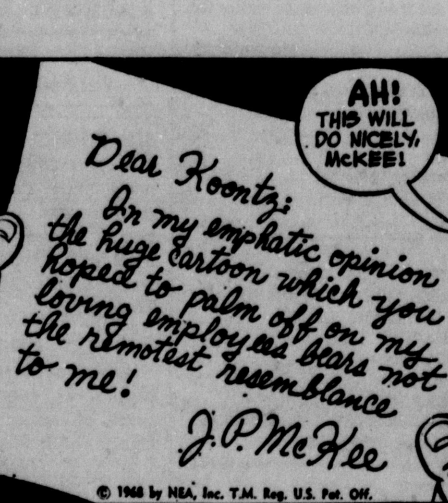 AH!
THIS WILL
DO NICELY,
McKEE!
Dear Koontz:
In my emphatic opinion
the huge cartoon which you
hoped to palm off on my
loving employees bears not
the remotest resemblance
to me!
J.P. McKee
© 1968 by NEA, Inc. T.M. Reg. U.S. Pat. Off.